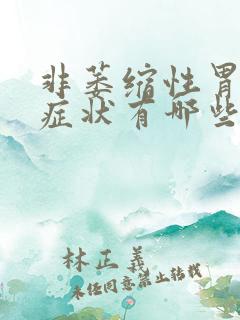 非萎缩性胃
症状有哪些
林正義
未经同意禁止转载